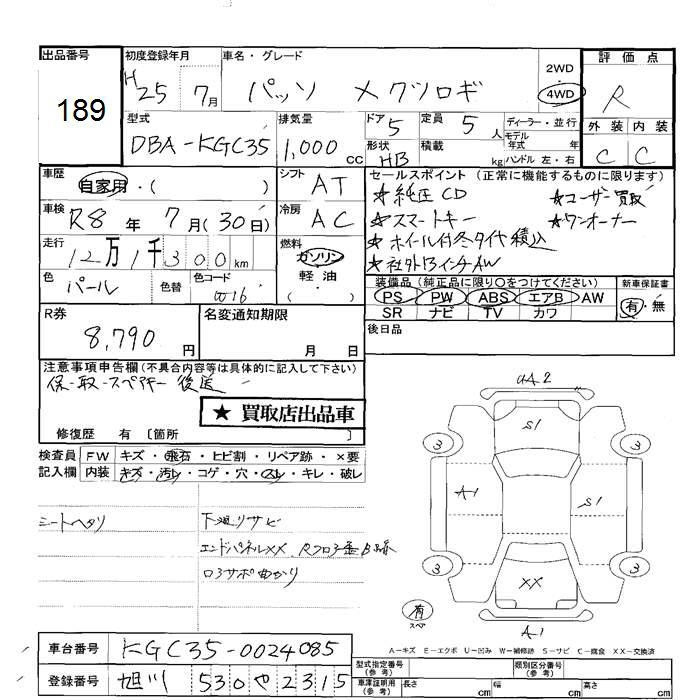 出品番号
189
初度登録年月
H25 7月
車名・グレード
パッソ メクツロギ
2WD
4WD
評価点
R
外装 内装
C C
型式
DBA-KGC35
排気量
1,000 cc
ドア 5
定員 5 人
ディーラー・並行
モデル年式 年式
形状 HB
積載 kg
ハンドル 左・右
車歴
自家用・( )
シフト AT
セールスポイント (正常に機能するものに限ります)
★純正CD ★ユーザー買取
★スマートキー ★ワンオーナー
★ホイル付冬タイヤ積込
★社外13インチAW
車検 R8年 7月(30日)
冷房 AC
走行
12万1千300km
燃料
ガソリン
軽油
( )
色 パール
色替
色コード W16
装備品 (純正品に限り○をつけてください)
PS PW ABS エアB AW
SR ナビ TV カワ
新車保証書
有・無
R券
8,790円
名変通知期限
月 日
後日品
注意事項申告欄(不具合内容等は具体的に記入して下さい)
保-取-スペアキー 後送
★ 買取店出品車
修復歴 有 〔箇所 〕
検査員記入欄
FW キズ・飛石・ヒビ割・リペア跡・×要
内装 キズ・汚レ・コゲ・穴・スレ・キレ・破レ
シートヘタリ
下廻りサビ
エンドパネルXX
コアサポ曲がり
UA2
S1
3 3
A-1 S1
3 3
XX
有
スペア
A-1
A-キズ E-エクボ U-凹み W-補修跡 S-サビ C-腐食 XX-交換済
車台番号 KGC35-0024085
登録番号 旭川 530 や 2315
型式指定番号(参考)
類別区分番号(参考)
車庫証明用(参考) 長さ cm 幅 cm 高さ cm